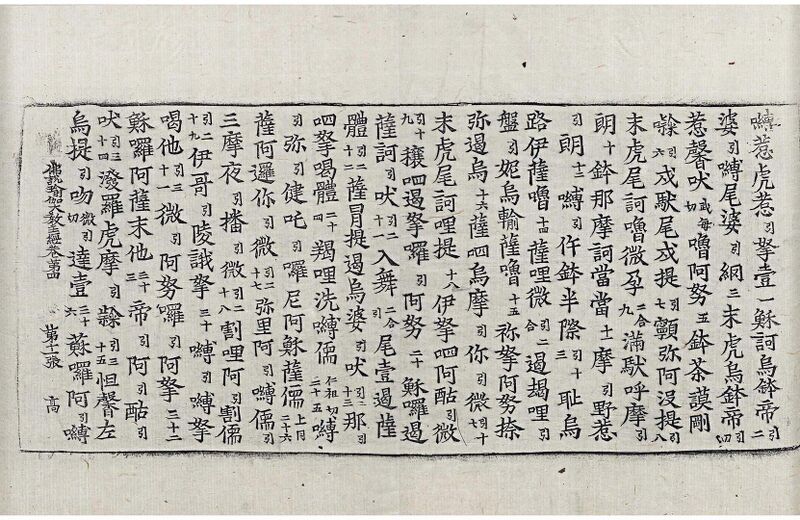 嚩惹虎惹引拏壹一穌訶烏鉢帝引二
婆引嚩尾婆引綱三末虎烏鉢帝引四
惹馨吠武每切嚕阿努五鉢茶謨剛
六戍馱尾戍提七顫弥阿沒提八
末虎尾訶嚕微孕二合九滿馱呼摩引
朗十鉢那摩訶當當十一摩引野惹
引朗十二嚩引仵鉢半際引十三耻烏
路伊薩嚕十四薩哩微二合遏揭哩引
盤引妮烏輸薩嚕十五祢拏阿努捺
弥遏烏十六薩呬烏摩引你引微引十七
末虎尾訶哩提十八伊拏呬阿酤引微
引十九攘呬遏拏囉引阿努二十穌囉遏
薩訶引吠引二十一入舞二合尾壹遏薩
體二十二薩冒提遏烏婆引吠引二十三那引
呬拏喝體二十四羯哩洗嚩儒仁祖切二十五嚩
引弥引健吒引囉尼阿穌薩儒上同二十六
薩阿邏你引微引二十七弥里阿引嚩儒引
三摩夜引播引微引二十八割哩阿引割儒
引二十九伊哥引陵誐拏三十嚩引嚩拏
喝他引三十一微引阿努囉引阿拏三十二
穌囉阿薩末他三十三帝引阿引酤引
吠引三十四潑羅虎摩引引三十五怛馨左
烏提引吻微切引達壹三十六蘇囉阿引嚩
佛說瑜伽大教王經卷第四 第十一張 高